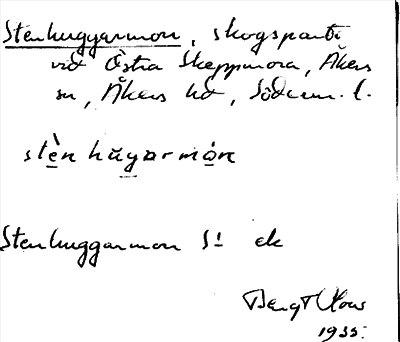 Stenhuggarmon, skogsparti
vid Östra Skeppmora, Åkers
sn, Åkers hd, Söderm. l.
stèn hùgarmón
Stenhuggarmon S! ek
Bengt
1935.